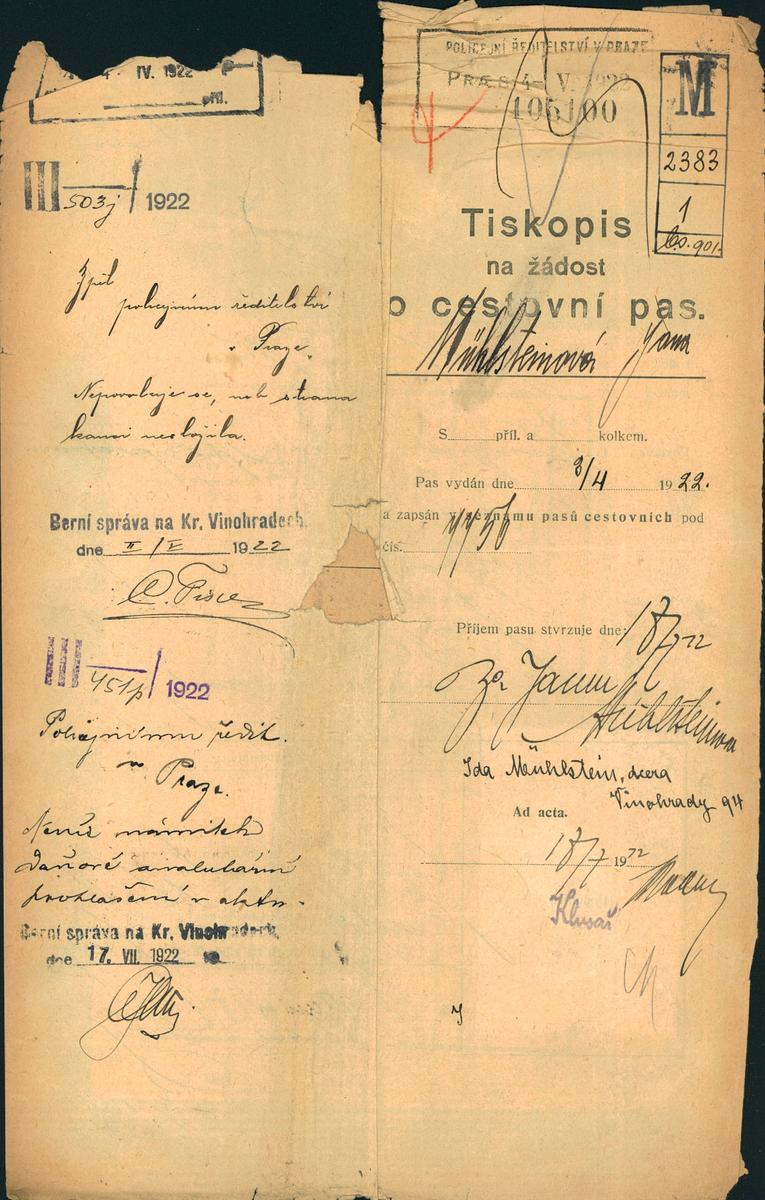 IV. 1922
příl.
III 503j / 1922
Zpět
policejnímu ředitelství
v Praze.
Nepovoluje se, neb strana
kauci nesložila.
Berní správa na Kr. Vinohradech.
dne II/V 1922
III 451p / 1922
Policejnímu ředit.
v Praze.
Není námitek
daňové a valutární
prohlášení v aktu.
Berní správa na Kr. Vinohradech,
dne 17. VII. 1922
POLICEJNÍ ŘEDITELSTVÍ V PRAZE
PRAES 4- V. 1922
105100
M
2383
1
Tiskopis
na žádost
o cestovní pas.
Mühlsteinová Jana
S příl. a kolkem.
Pas vydán dne 3/4 1922.
a zapsán v seznamu pasů cestovních pod
čís.
Příjem pasu stvrzuje dne: 18/7 22
za Janu Mühlsteinovou
Ida Mühlstein, dcera
Vinohrady 94
Ad acta.
18/7 1922
Klusáč